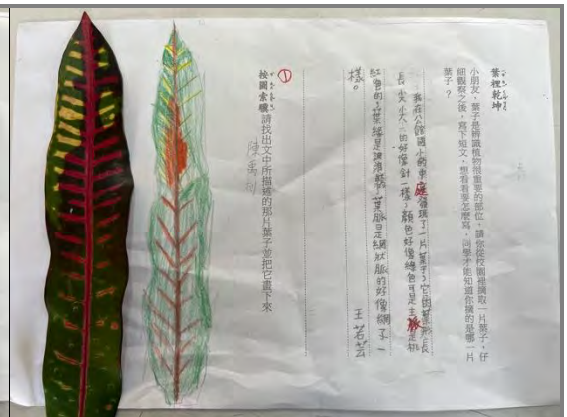 葉裡乾坤
小朋友，葉子是辨識植物很重要的部位，請你從校園裡摘取一片葉子，仔
細觀察之後，寫下短文，想看看要怎麼寫，同學才能知道你摘的是哪一片
葉子？
我在公館國小的東庭發現了一片葉子，它的葉形長
長尖尖的好像針一樣，顏色好像綠色可是主脈是桃
紅色的，葉緣是波浪狀，葉脈是網狀脈的好像網子一
樣。
王若芸
①
按圖索驥 請找出文中所描述的那片葉子並把它畫下來
陳禹